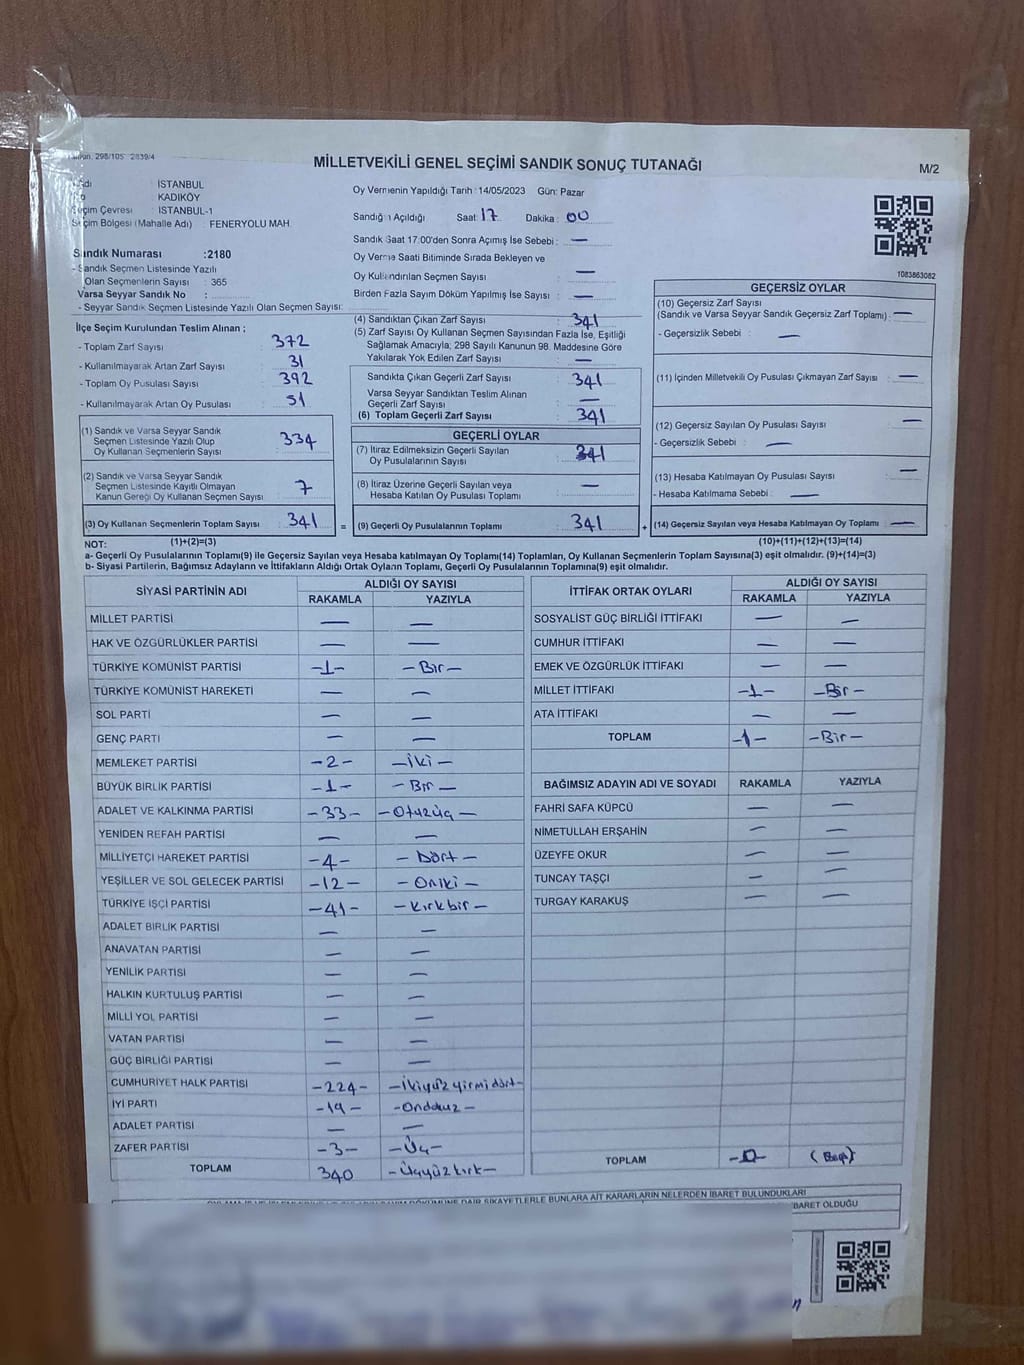 298/105 2839/4
MİLLETVEKİLİ GENEL SEÇİMİ SANDIK SONUÇ TUTANAĞI
M/2
İSTANBUL
KADIKÖY
Seçim Çevresi İSTANBUL-1
Seçim Bölgesi (Mahalle Adı) : FENERYOLU MAH.
Oy Vermenin Yapıldığı Tarih : 14/05/2023 Gün: Pazar
Sandığın Açıldığı Saat: 17 Dakika : 00
Sandık Saat 17:00'den Sonra Açımış İse Sebebi : —
Oy Verme Saati Bitiminde Sırada Bekleyen ve
Oy Kullandırılan Seçmen Sayısı —
Birden Fazla Sayım Döküm Yapılmış İse Sayısı : —
Sandık Numarası :2180
- Sandık Seçmen Listesinde Yazılı
Olan Seçmenlerin Sayısı : 365
Varsa Seyyar Sandık No :
- Seyyar Sandık Seçmen Listesinde Yazılı Olan Seçmen Sayısı:
1083863082
İlçe Seçim Kurulundan Teslim Alınan ;
- Toplam Zarf Sayısı : 372
- Kullanılmayarak Artan Zarf Sayısı : 31
- Toplam Oy Pusulası Sayısı : 392
- Kullanılmayarak Artan Oy Pusulası : 51
(1) Sandık ve Varsa Seyyar Sandık
Seçmen Listesinde Yazılı Olup
Oy Kullanan Seçmenlerin Sayısı : 334
(2) Sandık ve Varsa Seyyar Sandık
Seçmen Listesinde Kayıtlı Olmayan
Kanun Gereği Oy Kullanan Seçmen Sayısı : 7
(3) Oy Kullanan Seçmenlerin Toplam Sayısı : 341
(4) Sandıktan Çıkan Zarf Sayısı : 341
(5) Zarf Sayısı Oy Kullanan Seçmen Sayısından Fazla İse, Eşitliği
Sağlamak Amacıyla; 298 Sayılı Kanunun 98. Maddesine Göre
Yakılarak Yok Edilen Zarf Sayısı : —
Sandıkta Çıkan Geçerli Zarf Sayısı : 341
Varsa Seyyar Sandıktan Teslim Alınan
Geçerli Zarf Sayısı : —
(6) Toplam Geçerli Zarf Sayısı : 341
GEÇERLİ OYLAR
(7) İtiraz Edilmeksizin Geçerli Sayılan
Oy Pusulalarının Sayısı : 341
(8) İtiraz Üzerine Geçerli Sayılan veya
Hesaba Katılan Oy Pusulası Toplamı : —
= (9) Geçerli Oy Pusulalarının Toplamı : 341
GEÇERSİZ OYLAR
(10) Geçersiz Zarf Sayısı
(Sandık ve Varsa Seyyar Sandık Geçersiz Zarf Toplamı) : —
- Geçersizlik Sebebi : —
(11) İçinden Milletvekili Oy Pusulası Çıkmayan Zarf Sayısı : —
(12) Geçersiz Sayılan Oy Pusulası Sayısı : —
- Geçersizlik Sebebi : —
(13) Hesaba Katılmayan Oy Pusulası Sayısı : —
- Hesaba Katılmama Sebebi : —
+ (14) Geçersiz Sayılan veya Hesaba Katılmayan Oy Toplamı : —
NOT: (1)+(2)=(3) (10)+(11)+(12)+(13)=(14)
a- Geçerli Oy Pusulalarının Toplamı(9) ile Geçersiz Sayılan veya Hesaba katılmayan Oy Toplamı(14) Toplamları, Oy Kullanan Seçmenlerin Toplam Sayısına(3) eşit olmalıdır. (9)+(14)=(3)
b- Siyasi Partilerin, Bağımsız Adayların ve İttifakların Aldığı Ortak Oyların Toplamı, Geçerli Oy Pusulalarının Toplamına(9) eşit olmalıdır.
SİYASİ PARTİNİN ADI ALDIĞI OY SAYISI
RAKAMLA YAZIYLA
MİLLET PARTİSİ — —
HAK VE ÖZGÜRLÜKLER PARTİSİ — —
TÜRKİYE KOMÜNİST PARTİSİ -1- - Bir -
TÜRKİYE KOMÜNİST HAREKETİ — —
SOL PARTİ — —
GENÇ PARTİ — —
MEMLEKET PARTİSİ -2- - iki -
BÜYÜK BİRLİK PARTİSİ -1- - Bir -
ADALET VE KALKINMA PARTİSİ -33- - Otuzüç -
YENİDEN REFAH PARTİSİ — —
MİLLİYETÇİ HAREKET PARTİSİ -4- - Dört -
YEŞİLLER VE SOL GELECEK PARTİSİ -12- - Oniki -
TÜRKİYE İŞÇİ PARTİSİ -41- - Kırkbir -
ADALET BİRLİK PARTİSİ — —
ANAVATAN PARTİSİ — —
YENİLİK PARTİSİ — —
HALKIN KURTULUŞ PARTİSİ — —
MİLLİ YOL PARTİSİ — —
VATAN PARTİSİ — —
GÜÇ BİRLİĞİ PARTİSİ — —
CUMHURİYET HALK PARTİSİ -224- - ikiyüz yirmi dört -
İYİ PARTİ -19- - Ondokuz -
ADALET PARTİSİ — —
ZAFER PARTİSİ -3- - Üç -
TOPLAM 340 - Üçyüz kırk -
İTTİFAK ORTAK OYLARI ALDIĞI OY SAYISI
RAKAMLA YAZIYLA
SOSYALİST GÜÇ BİRLİĞİ İTTİFAKI — —
CUMHUR İTTİFAKI — —
EMEK VE ÖZGÜRLÜK İTTİFAKI — —
MİLLET İTTİFAKI -1- - Bir -
ATA İTTİFAKI — —
TOPLAM -1- - Bir -
BAĞIMSIZ ADAYIN ADI VE SOYADI RAKAMLA YAZIYLA
FAHRİ SAFA KÜPCÜ — —
NİMETULLAH ERŞAHİN — —
ÜZEYFE OKUR — —
TUNCAY TAŞÇI — —
TURGAY KARAKUŞ — —
TOPLAM
ŞİKAYETLERLE BUNLARA AİT KARARLARIN NELERDEN İBARET BULUNDUKLARI
İBARET OLDUĞU